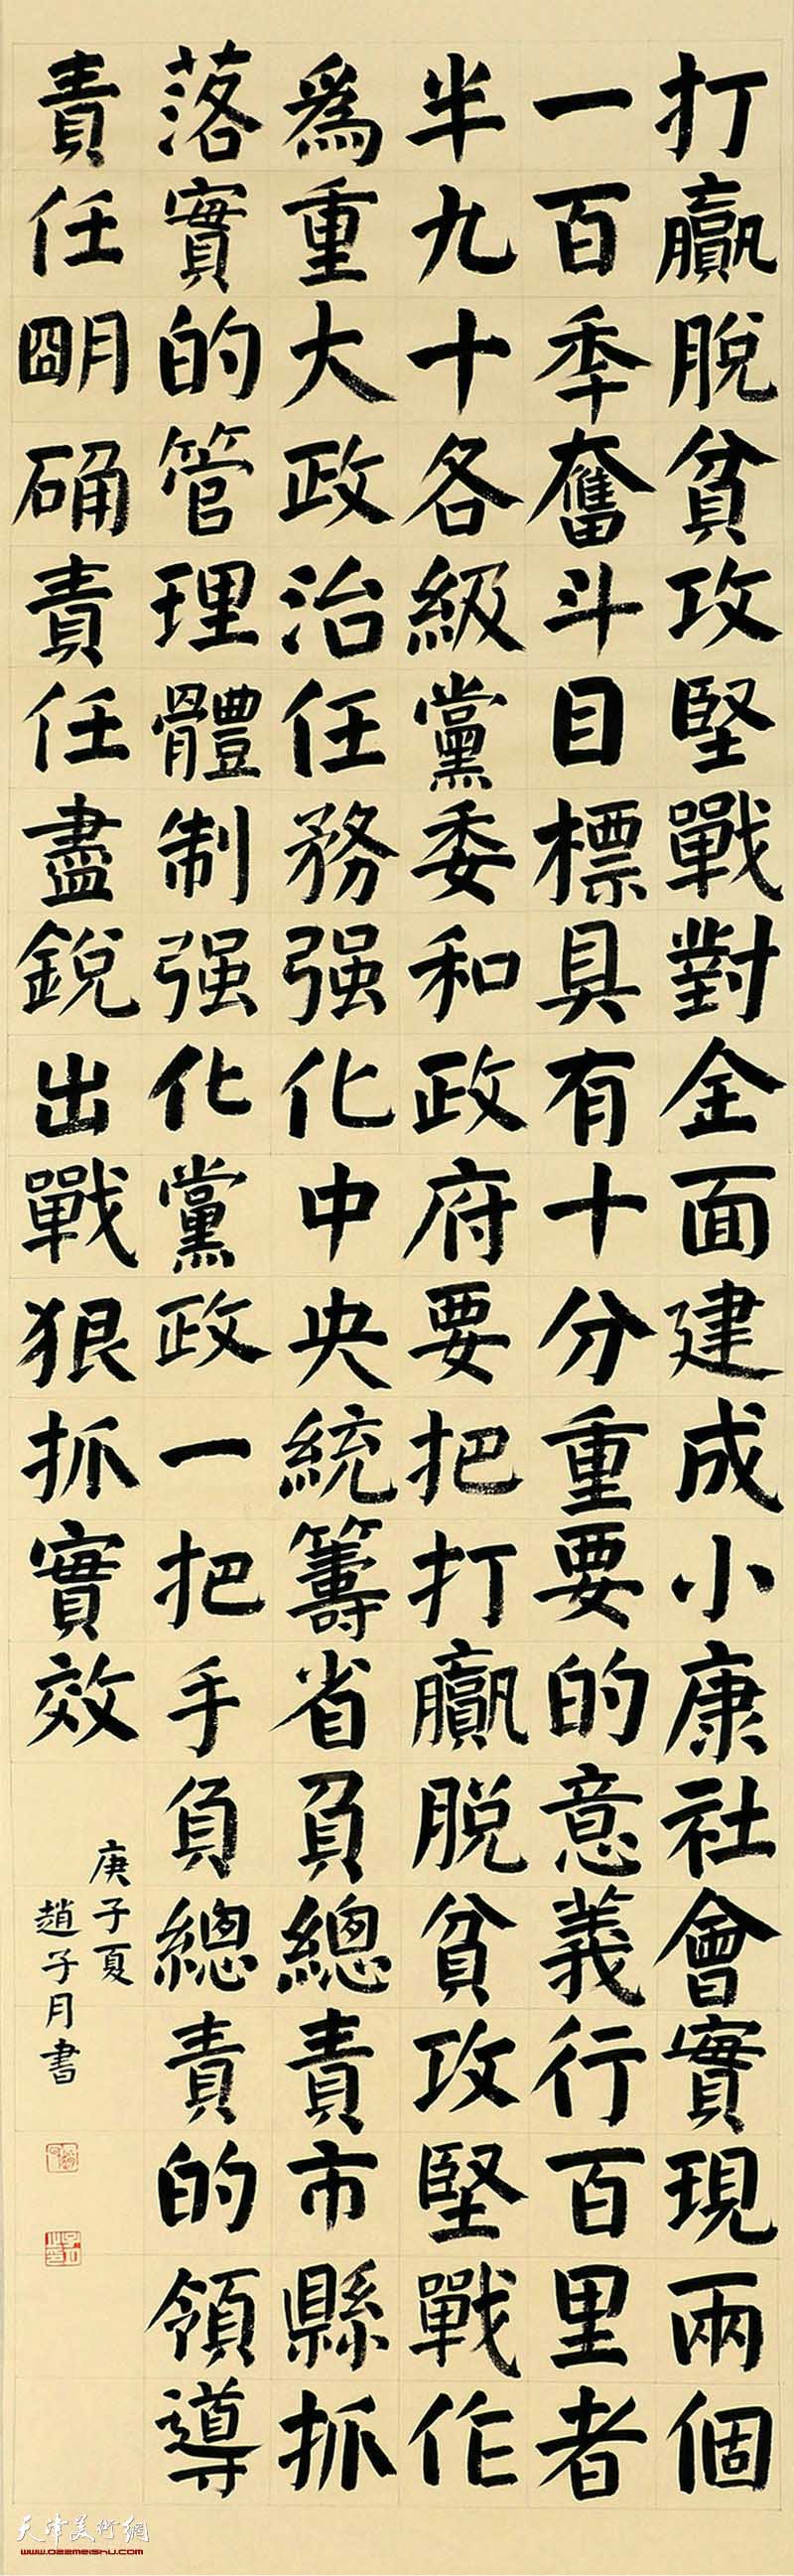 打贏脫貧攻堅戰對全面建成小康社會實現兩個
一百季奮斗目標具有十分重要的意義行百里者
半九十各級黨委和政府要把打贏脫貧攻堅戰作
爲重大政治任務强化中央統籌省負總責市縣抓
落實的管理體制强化黨政一把手負總責的領導
責任朙确責任盡銳出戰狠抓實效
庚子夏
趙子月書
天津美術網
www.022meishu.com